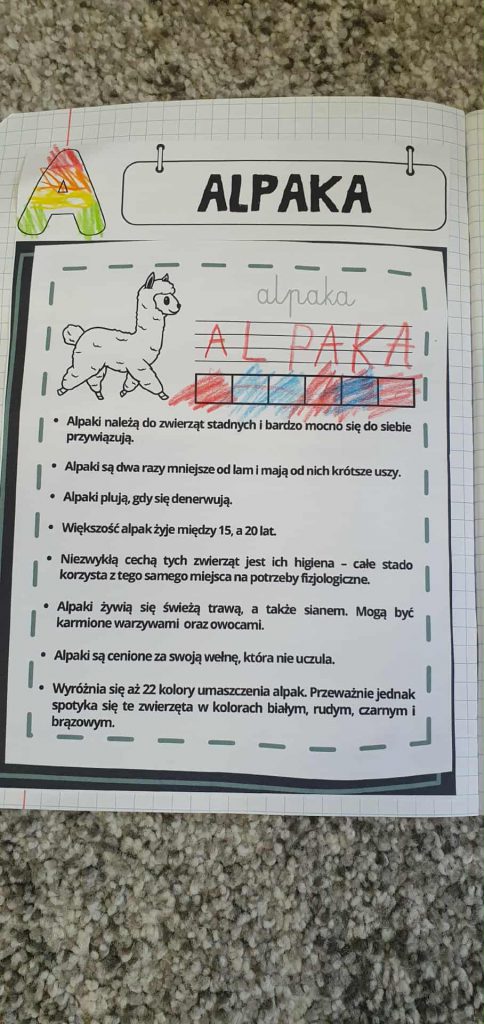 A
ALPAKA
alpaka
ALPAKA
• Alpaki należą do zwierząt stadnych i bardzo mocno się do siebie
przywiązują.
• Alpaki są dwa razy mniejsze od lam i mają od nich krótsze uszy.
• Alpaki plują, gdy się denerwują.
• Większość alpak żyje między 15, a 20 lat.
• Niezwykłą cechą tych zwierząt jest ich higiena – całe stado
korzysta z tego samego miejsca na potrzeby fizjologiczne.
• Alpaki żywią się świeżą trawą, a także sianem. Mogą być
karmione warzywami oraz owocami.
• Alpaki są cenione za swoją wełnę, która nie uczula.
• Wyróżnia się aż 22 kolory umaszczenia alpak. Przeważnie jednak
spotyka się te zwierzęta w kolorach białym, rudym, czarnym i
brązowym.